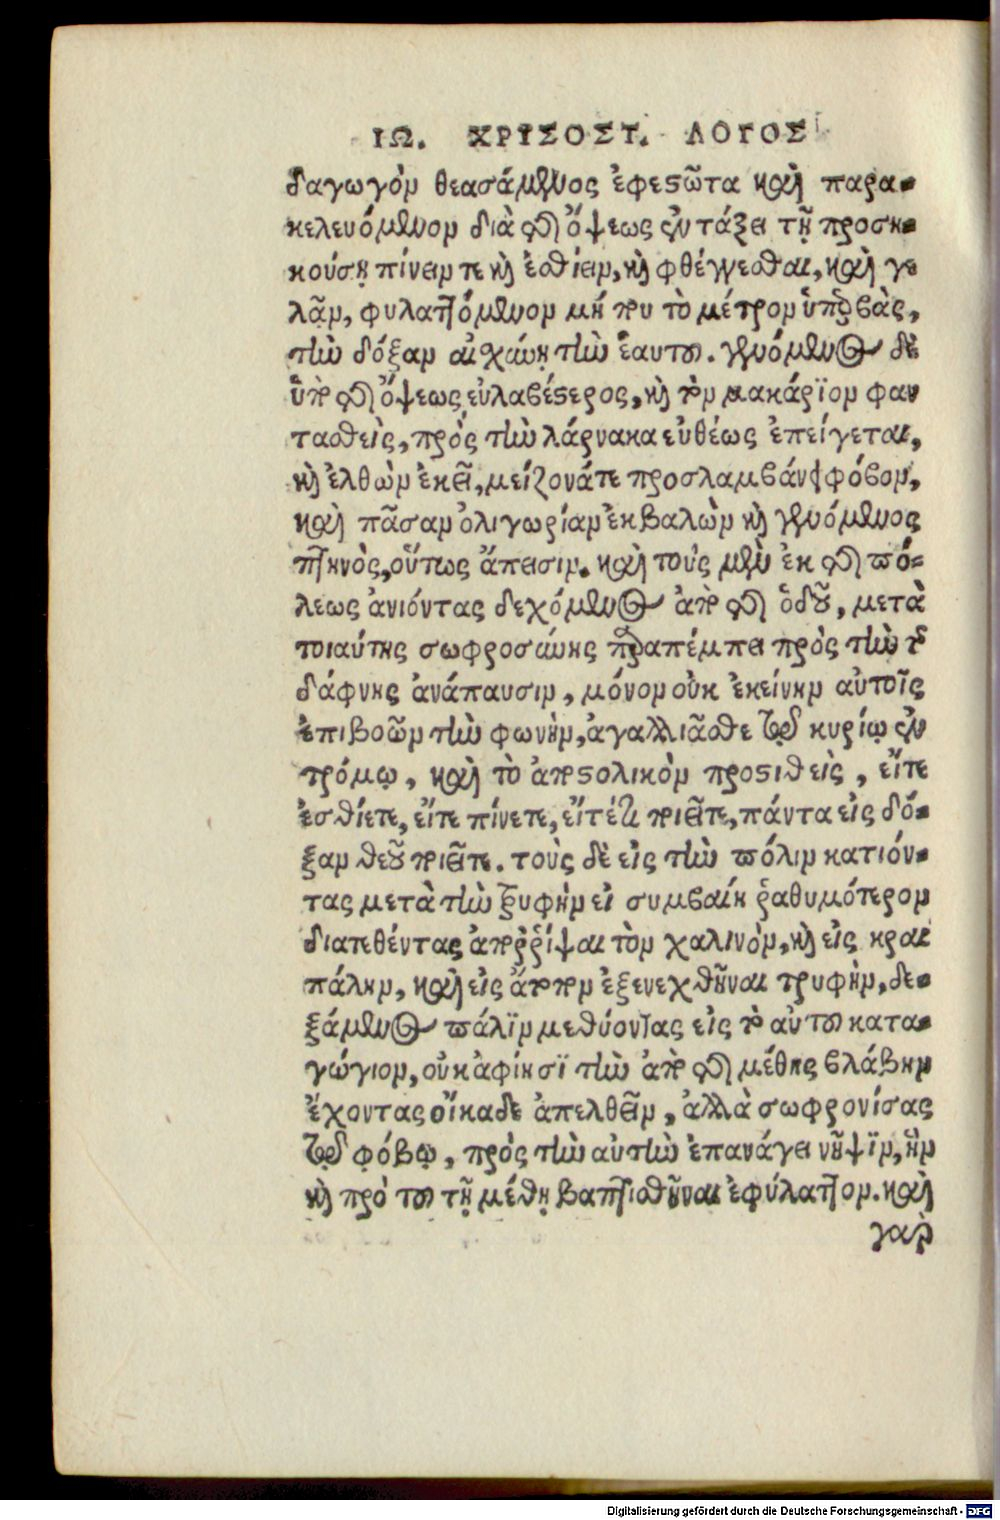 ΙΩ. ΧΡΙΣΟΣΤ. ΛΟΓΟΣ
δαγωγὸν θεασάμενος ἐφεστῶτα καὶ παρα-
κελευόμενον διὰ τῆς ὄψεως ἐν τάξει τῇ προση-
κούσῃ πίνειν τε καὶ ἐσθίειν, καὶ φθέγγεσθαι, καὶ γε
λᾷν, φυλαττόμενον μή που τὸ μέτρον ὑπερβὰς,
τὴν δόξαν αἰσχύνῃ τὴν ἑαυτοῦ. γενόμενος δὲ
ὑπὸ τῆς ὄψεως εὐλαβέστερος, καὶ τὸν μακάριον φαν
τασθεὶς, πρὸς τὴν λάρνακα εὐθέως ἐπείγεται,
καὶ ἐλθὼν ἐκεῖ, μείζονά τε προσλαμβάνει φόβον,
καὶ πᾶσαν ὀλιγωρίαν ἐκβαλὼν καὶ γενόμενος
πτηνὸς, οὕτως ἄπεισιν. καὶ τοὺς μὲν ἐκ τῆς πό-
λεως ἀνιόντας δεχόμενος ἀπὸ τῆς ὁδοῦ, μετὰ
τοιαύτης σωφροσύνης παραπέμπει πρὸς τὴν τῆς
δάφνης ἀνάπαυσιν, μόνον οὐκ ἐκείνην αὐτοῖς
ἐπιβοῶν τὴν φωνὴν, ἀγαλλιᾶσθε τῷ κυρίῳ ἐν
τρόμῳ, καὶ τὸ ἀποστολικὸν προστιθεὶς, εἴτε
ἐσθίετε, εἴτε πίνετε, εἴτέ τι ποιεῖτε, πάντα εἰς δό-
ξαν θεοῦ ποιεῖτε. τοὺς δὲ εἰς τὴν πόλιν κατιόν-
τας μετὰ τὴν τρυφὴν εἰ συμβαίη ῥαθυμότερον
διατεθέντας ἀποῤῥίψαι τὸν χαλινὸν, καὶ εἰς κραι
πάλην, καὶ εἰς ἄτοπον ἐξενεχθῆναι τρυφὴν, δε-
ξάμενος πάλιν μεθύοντας εἰς τὸ αὐτοῦ κατα-
γώγιον, οὐκ ἀφίησι τὴν ἀπὸ τῆς μέθης βλάβην
ἔχοντας οἴκαδε ἀπελθεῖν, ἀλλὰ σωφρονίσας
τῷ φόβῳ, πρὸς τὴν αὐτὴν ἐπανάγει νῆψιν, ἣν
καὶ πρὸ τοῦ τῇ μέθῃ βαπτισθῆναι ἐφύλαττον. καὶ
γαρ
Digitalisierung gefördert durch die Deutsche Forschungsgemeinschaft - DFG